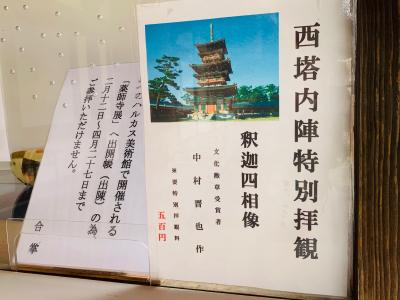 西塔内陣特別拝観
釈迦四相像
文化勲章受賞者
中村晋也 作
※要特別拝観料
五百円
ハルカス美術館で開催される
「薬師寺展」へ出開帳(出陳)の為、
二月十二日~四月二十七日まで
ご参拝いただけません。
合掌